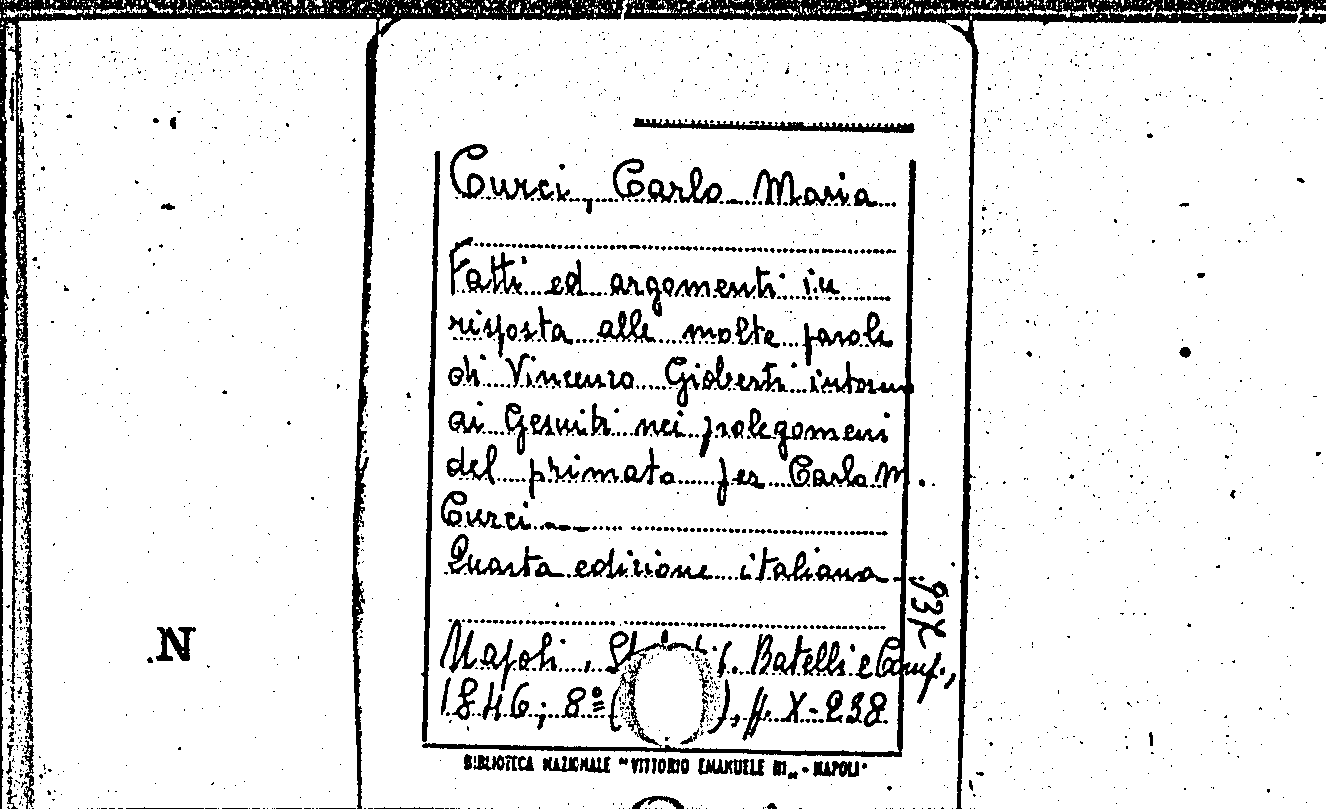 Curci, Carlo Maria
Fatti ed argomenti in
risposta alle molte parole
di Vincenzo Gioberti intorno
ai Gesuiti nei prolegomeni
del primato per Carlo M.
Curci
Quarta edizione italiana
937
Napoli, Batelli e Comp.,
1846; 8º ( ), pp. X-238
N
BIBLIOTECA NAZIONALE "VITTORIO EMANUELE III" - NAPOLI